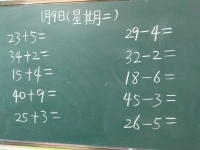 1月9日(星期二)
23+5= 29-4=
34+2= 32-2=
15+4= 18-6=
40+9= 45-3=
25+3= 26-5=